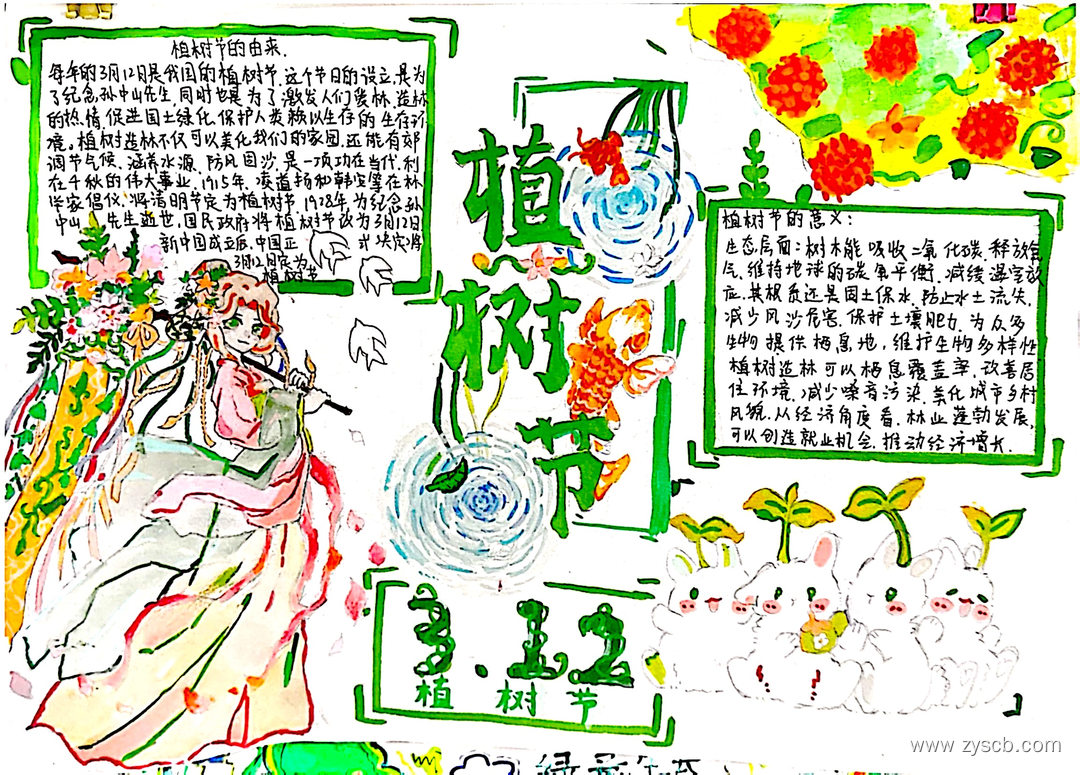 植树节的由来.
每年的3月12日是我国的植树节.这个节日的设立.是为
了纪念孙中山先生.同时也是为了激发人们爱林.造林
的热情.促进国土绿化.保护人类赖以生存的生态环
境。植树造林不仅可以美化我们的家园.还能有
调节气候、涵养水源、防风固沙.是一项功在当代.利
在千秋的伟大事业.1915年.凌道扬和韩安等在林
学家倡仪.将清明节定为植树节.1928年为纪念孙
中山 先生逝世.国民政府将植树节改为3月12日.
新中国成立后.中国正 式决定将
3月12日定为
植树节
植树节
植树节的意义:
生态层面:树木能吸收二氧化碳.释放氧
气.维持地球的碳氧平衡.减缓温室效
应.其根质还是固土保水.防止水土流失.
减少风沙危害.保护土壤肥力.为众多
生物提供栖息地,维护生物多样性
植树造林可以栖息覆盖率.改善居
住环境.减少噪音污染.美化城市乡村
风貌.从经济角度看.林业蓬勃发展.
可以创造就业机会.推动经济增长.
3.12
植树节
www.zyscb.com